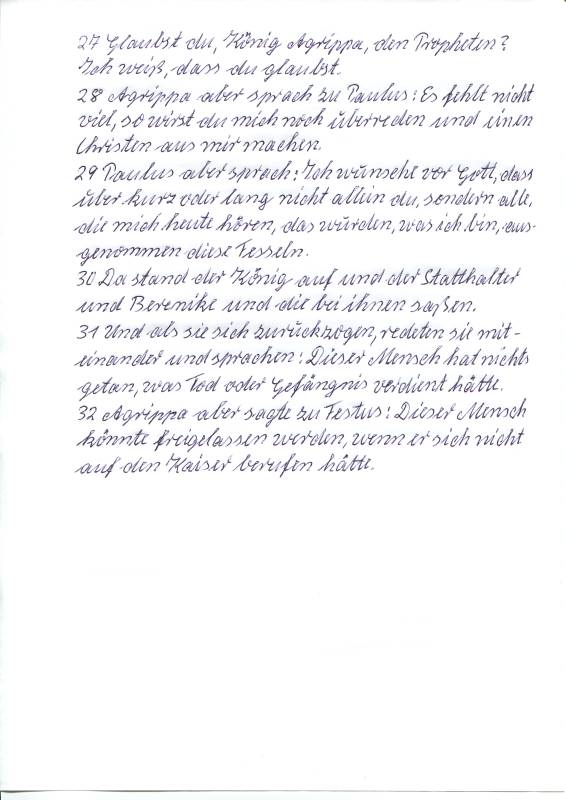 27 Glaubst du, König Agrippa, den Propheten?
Ich weiß, dass du glaubst.
28 Agrippa aber sprach zu Paulus: Es fehlt nicht
viel, so wirst du mich noch überreden und einen
Christen aus mir machen.
29 Paulus aber sprach: Ich wünschte vor Gott, dass
über kurz oder lang nicht allein du, sondern alle,
die mich heute hören, das würden, was ich bin, aus-
genommen diese Fesseln.
30 Da stand der König auf und der Statthalter
und Berenike und die bei ihnen saßen.
31 Und als sie sich zurückzogen, redeten sie mit-
einander und sprachen: Dieser Mensch hat nichts
getan, was Tod oder Gefängnis verdient hätte.
32 Agrippa aber sagte zu Festus: Dieser Mensch
könnte freigelassen werden, wenn er sich nicht
auf den Kaiser berufen hätte.